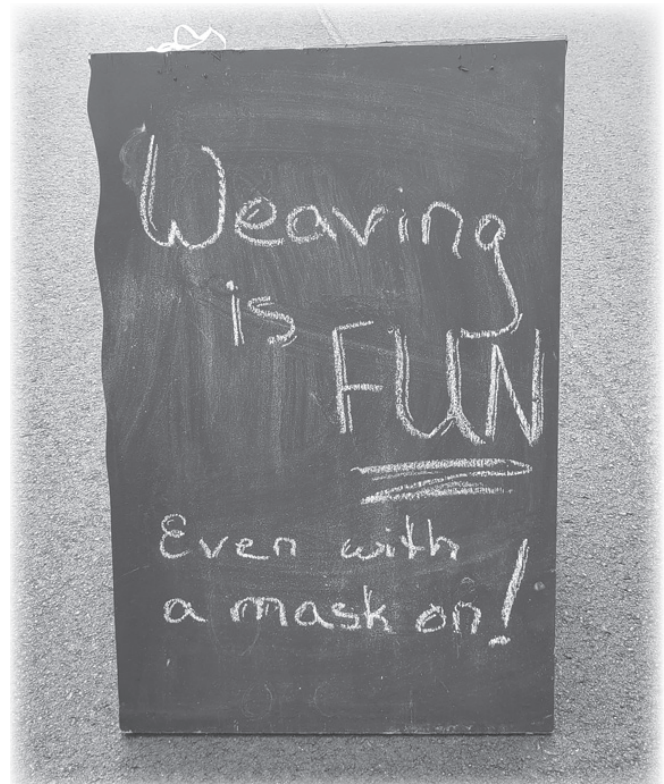 Weaving
is
FUN
Even with
a mask on!